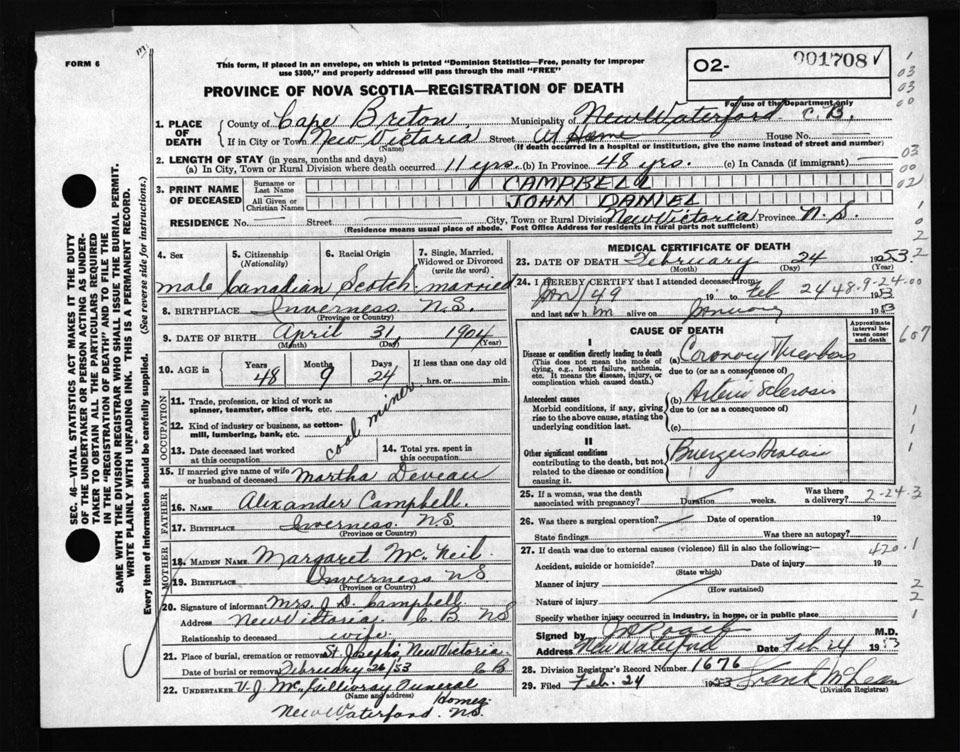 FORM 6
This form, if placed in an envelope, on which is printed "Dominion Statistics—Free, penalty for improper
use $300," and properly addressed will pass through the mail "FREE"
PROVINCE OF NOVA SCOTIA—REGISTRATION OF DEATH
02- 001708 ✓
For use of the Department only
1. PLACE OF DEATH
County of Cape Briton Municipality of New Waterford C.B.
If in City or Town New Victoria Street At Home House No. —
(Name) (If death occurred in a hospital or institution, give the name instead of street and number)
2. LENGTH OF STAY (in years, months and days)
(a) In City, Town or Rural Division where death occurred 11 yrs. (b) In Province 48 yrs. (c) In Canada (if immigrant) —
3. PRINT NAME OF DECEASED
Surname or Last Name CAMPBELL
All Given or Christian Names JOHN DANIEL
RESIDENCE No. — Street — City, Town or Rural Division New Victoria Province N.S.
(Residence means usual place of abode. Post Office Address for residents in rural parts not sufficient)
4. Sex 5. Citizenship (Nationality) 6. Racial Origin 7. Single, Married, Widowed or Divorced (write the word)
male Canadian Scotch married
8. BIRTHPLACE Inverness N.S.
(Province or Country)
9. DATE OF BIRTH April 31 1904
(Month) (Day) (Year)
10. AGE in Years 48 Months 9 Days 24 If less than one day old hrs. or min.
OCCUPATION
11. Trade, profession, or kind of work as spinner, teamster, office clerk, etc.
12. Kind of industry or business, as cotton-mill, lumbering, bank, etc.
coal miner
13. Date deceased last worked at this occupation
14. Total yrs. spent in this occupation
15. If married give name of wife or husband of deceased Martha Deveau
FATHER
16. NAME Alexander Campbell.
17. BIRTHPLACE Inverness. N.S
(Province or Country)
MOTHER
18. MAIDEN NAME Margaret Mc. Neil.
19. BIRTHPLACE Inverness NS
(Province or Country)
20. Signature of informant Mrs. J. D. Campbell.
Address New Victoria C.B. NS
Relationship to deceased wife.
21. Place of burial, cremation or removal St. Josephs, New Victoria.
Date of burial or removal February 26/53 C B
22. UNDERTAKER V. J. McGillivray Funeral Homes.
(Name and address)
New Waterford. N.S.
MEDICAL CERTIFICATE OF DEATH
23. DATE OF DEATH February 24 1953
(Month) (Day) (Year)
24. I HEREBY CERTIFY that I attended deceased from
Jan / 49 19 to Feb 24 1953
and last saw him alive on January 1953
48-9-24-00
CAUSE OF DEATH
Approximate interval between onset and death
I
Disease or condition directly leading to death
(This does not mean the mode of dying, e.g., heart failure, asthenia, etc. It means the disease, injury, or complication which caused death.)
(a) Coronary Thrombosis
due to (or as a consequence of)
Antecedent causes
Morbid conditions, if any, giving rise to the above cause, stating the underlying condition last.
(b) Arterio Sclerosis
due to (or as a consequence of)
(c)
II
Other significant conditions
contributing to the death, but not related to the disease or condition causing it.
Buergers Disease
25. If a woman, was the death associated with pregnancy? Duration weeks. Was there a delivery?
2-24-3
26. Was there a surgical operation? Date of operation 19
State findings Was there an autopsy?
27. If death was due to external causes (violence) fill in also the following:—
420.1
Accident, suicide or homicide? Date of injury 19
(State which)
Manner of injury
(How sustained)
Nature of injury
Specify whether injury occurred in industry, in home, or in public place
Signed by M.D.
Address New Waterford Date Feb 24 1953
28. Division Registrar's Record Number 1676
29. Filed Feb. 24 1953 Frank McLean
(Division Registrar)
SEC. 46 VITAL STATISTICS ACT MAKES IT THE DUTY
OF THE UNDERTAKER OR PERSON ACTING AS UNDER-
TAKER TO OBTAIN ALL THE PARTICULARS REQUIRED
IN THE "REGISTRATION OF DEATH" AND TO FILE THE
SAME WITH THE DIVISION REGISTRAR WHO SHALL ISSUE THE BURIAL PERMIT.
WRITE PLAINLY WITH UNFADING INK. THIS IS A PERMANENT RECORD.
Every item of information should be carefully supplied. (See reverse side for instructions.)
1
03
03
00
03
00
02
1
0
2
2
607
1
1
1
2
2
1